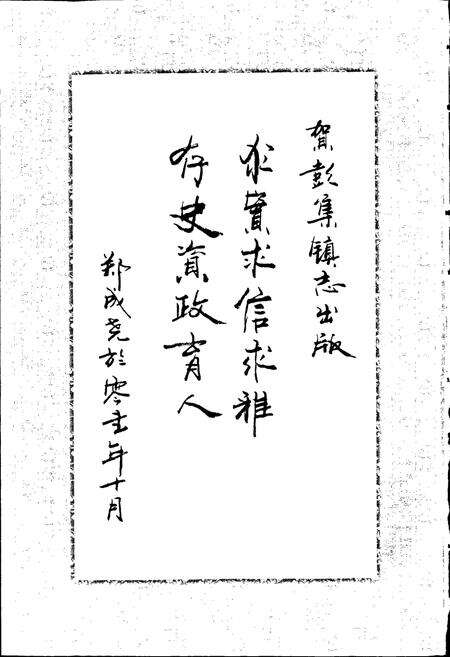 贺彭集镇志出版
求實求信求雅
存史資政育人
郑成尧於零壹年十月